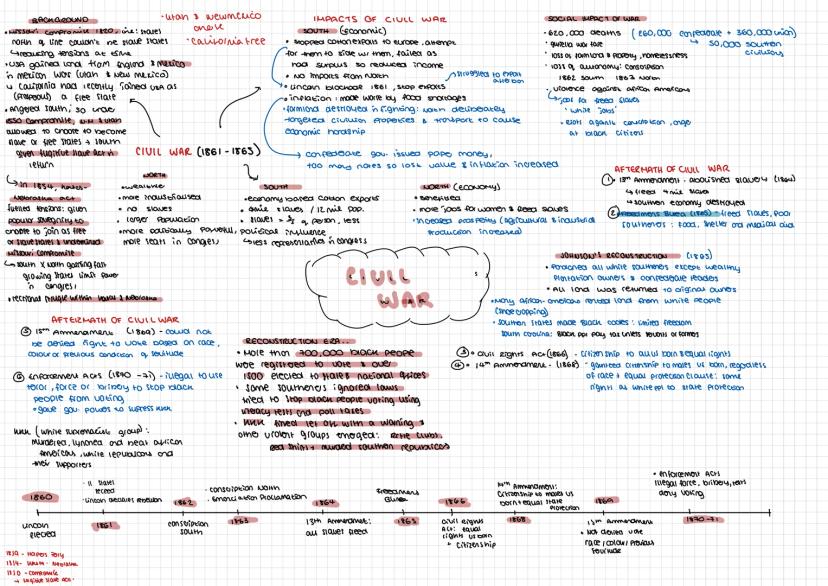 BACKGROUND
Missouri compromise 1820, line: states
north of line couldn't be slave states
reducing tensions at time
USA gained land from England & Mexico
in mexican war (Utah & New Mexico)
California had recently joined USA as
a free state
Angered south, so under
1850 compromise,
allowed to choose to become
slave or free states + south
given fugitive slave act in
return
In 1854, Kansas-
Nebraska act
fuelled tensions: given
popular sovereignty to
choose to join as free
or slave states & undermined
Missouri compromise
growing states limit power
in congress
Utah & New Mexico
California free
CIVIL WAR (1861-1865)
IMPACTS OF CIVIL WAR
SOUTH (economic)
stopped cotton exports to europe, attempt
for them to side w them, failed as
had surplus so reduced income
No imports from North
Lincoln blockade 1861, stop exports
struggled to export
inflation: made worse by food shortages
farmland destroyed in fighting: north deliberately
targeted civilian properties & transport to cause
economic hardship
confederate gov. issued paper money,
too many notes so lost value & inflation increased
SOCIAL IMPACT OF WAR
620,000 deaths (260,000 confederate + 360,000 union)
50,000 southern
civilians
loss of farmland & property, homelessness
loss of autonomy: conscription
1862 south 1863 North
violence against african americans
jobs for freed slaves
'white jobs'
riots against conscription, anger
at black citizens
NORTH
more industrialised
no slaves
larger population
more politically powerful,
more seats in congress
SOUTH
economy worked cotton exports
4mil slaves / 12 mil pop.
slaves = 3/5 a person, less
political influence
less representatives in congress
NORTH (economy)
benefitted
more jobs for women & freed slaves
increased prosperity (agricultural & industrial
production increased)
CIVIL
WAR
AFTERMATH OF CIVIL WAR
① 13th Ammendment - abolished slavery (1864)
freed 4 mil slaves
southern economy destroyed
② Freedmens Bureau (1865) - freed slaves, poor
southerners: food, shelter and medical aid
JOHNSON'S RECONSTRUCTION (1865)
Pardoned all white southerners except wealthy
plantation owners & confederate leaders
All land was returned to original owners
Many african-american rented land from white people
(sharecropping)
southern states made black codes: limited freedom
③ Civil rights Act (1866) - citizenship to all US born & equal rights
④ 14th Ammendment - (1868) - granted citizenship to those US born, regardless
of race + equal protection clause: same
rights as white ppl to state protection
AFTERMATH OF CIVIL WAR
⑤ 15th Ammendment - (1869) - could not
be denied right to vote based on race,
colour or previous condition of servitude
⑥ Enforcement Acts (1870-71) - illegal to use
terror, force or bribery to stop black
people from voting
gave gov. powers to supress KKK
KKK (white supremacist group):
Murdered, lynched and beat african
americans, white republicans and
their supporters
RECONSTRUCTION ERA..
More than 700,000 black people
were registered to vote & over
1500 elected to state & national offices
Some southerners ignored laws
tried to stop black people voting using
literacy tests and poll taxes
KKK fined let off with a warning &
other violent groups emerged: rifle clubs,
red shirts + murdered southern republicans
1860
Lincoln
elected
11 states
secede
Lincoln declares rebellion
1861
1862
conscription
south
conscription North
Emancipation Proclamation
1863
1864
13th Amendment:
all slaves freed
Freedmens
Bureau
1865
1866
civil rights
Act: equal
rights US born
+ citizenship
14th Ammendment:
citizenship to those US
born + equal state
protection
1868
1869
15th Ammendment
Not denied vote
race/colour/previous
servitude
enforcement Acts
illegal force, bribery, terror
deny voting
1870-71
1859 - Harpers Ferry
1854 - Kansas - Nebraska
1850 - compromise
fugitive slave act